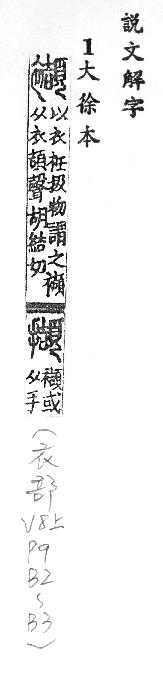 説文解字
1大徐本
以衣衽扱物謂之襭
从衣頡聲胡結切
襭或
从手
(衣部
V8上
P9
B2
~
B3)